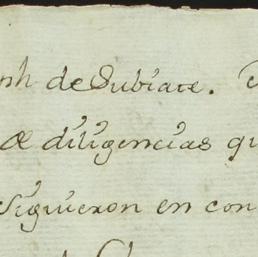 nh de Subiate.
diligencias qu
siguieron en con